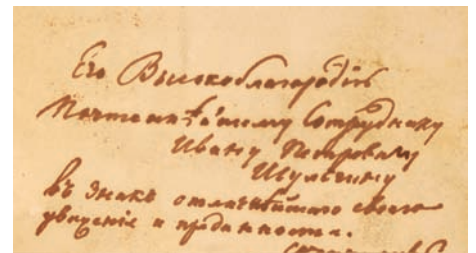 Его Высокоблагородію
Почтеннѣйшему Сотруднику
Ивану Петровичу
Шульгину
въ знакъ отличнѣйшаго своего
уваженія и преданности.